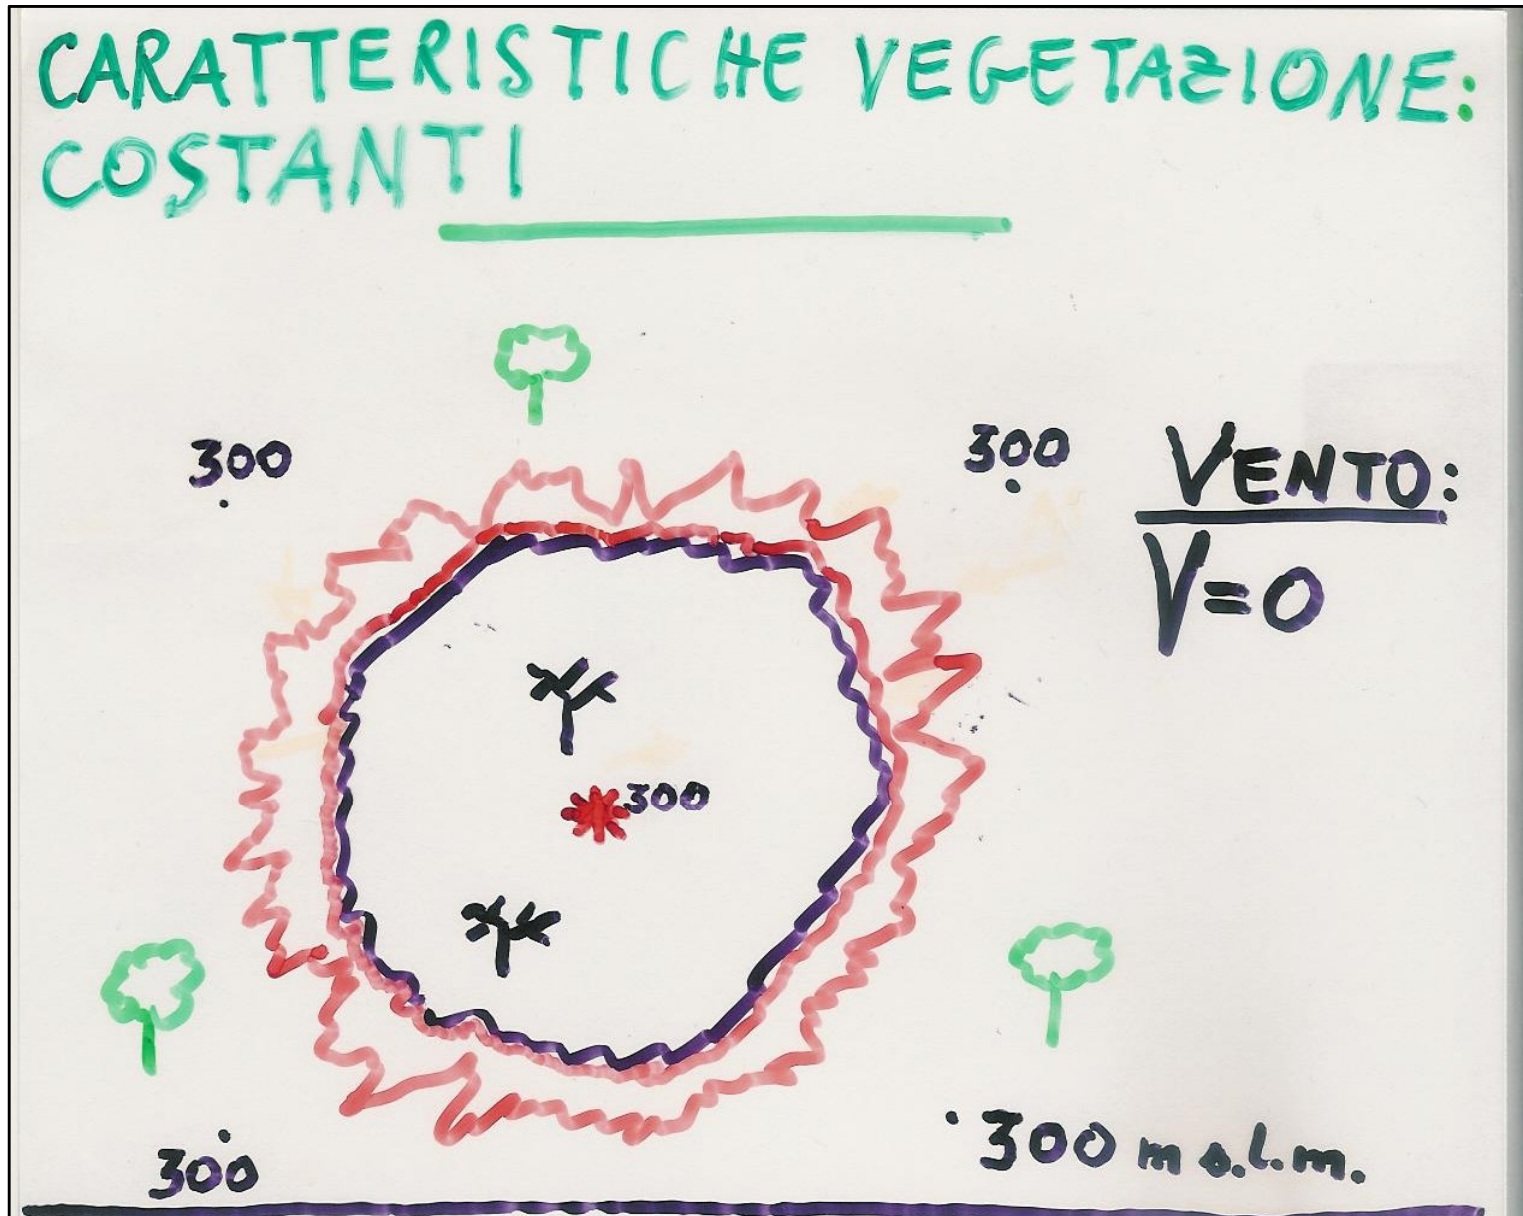 CARATTERISTICHE VEGETAZIONE:
COSTANTI
300
300
VENTO:
V=0
300
300
300 m s.l.m.